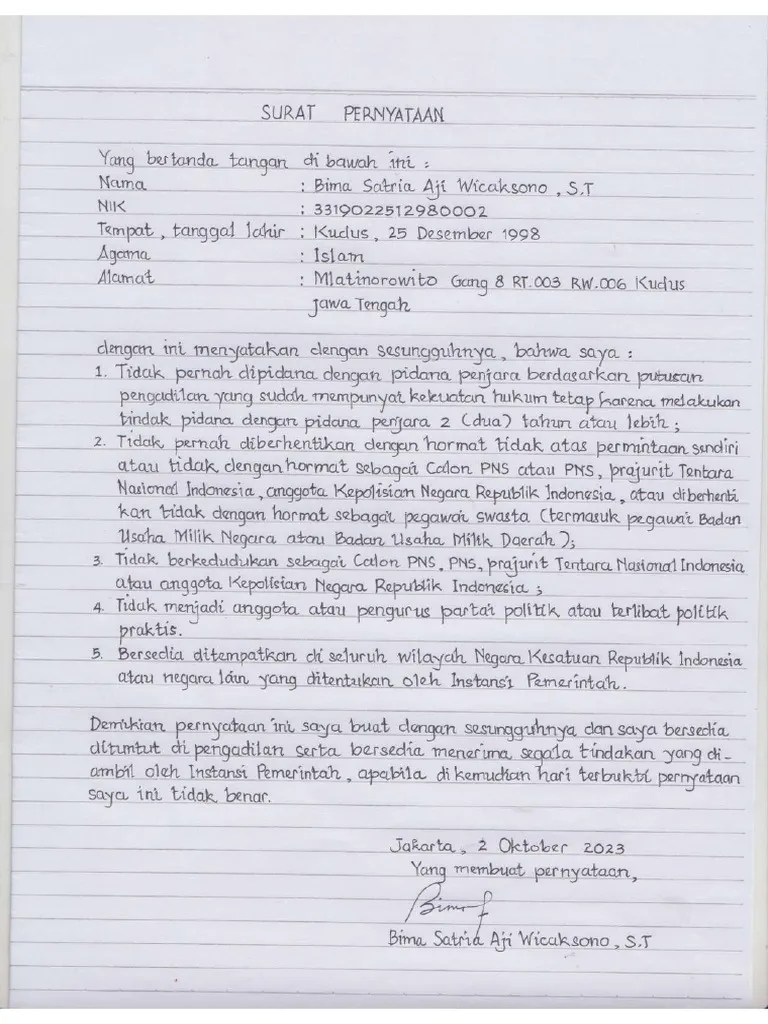 SURAT PERNYATAAN
Yang bertanda tangan di bawah ini :
Nama : Bima Satria Aji Wicaksono, S.T
NIK : 3319022512980002
Tempat, tanggal lahir : Kudus, 25 Desember 1998
Agama : Islam
Alamat : Mlatinorowito Gang 8 RT.003 RW.006 Kudus
Jawa Tengah
dengan ini menyatakan dengan sesungguhnya, bahwa saya :
1. Tidak pernah dipidana dengan pidana penjara berdasarkan putusan
pengadilan yang sudah mempunyai kekuatan hukum tetap karena melakukan
tindak pidana dengan pidana penjara 2 (dua) tahun atau lebih;
2. Tidak pernah diberhentikan dengan hormat tidak atas permintaan sendiri
atau tidak dengan hormat sebagai Calon PNS atau PNS, prajurit Tentara
Nasional Indonesia, anggota Kepolisian Negara Republik Indonesia, atau diberhenti
kan tidak dengan hormat sebagai pegawai swasta (termasuk pegawai Badan
Usaha Milik Negara atau Badan Usaha Milik Daerah);
3. Tidak berkedudukan sebagai Calon PNS, PNS, prajurit Tentara Nasional Indonesia
atau anggota Kepolisian Negara Republik Indonesia;
4. Tidak menjadi anggota atau pengurus partai politik atau terlibat politik
praktis.
5. Bersedia ditempatkan di seluruh wilayah Negara Kesatuan Republik Indonesia
atau negara lain yang ditentukan oleh Instansi Pemerintah.
Demikian pernyataan ini saya buat dengan sesungguhnya dan saya bersedia
dituntut di pengadilan serta bersedia menerima segala tindakan yang di-
ambil oleh Instansi Pemerintah, apabila di kemudian hari terbukti pernyataan
saya ini tidak benar.
Jakarta, 2 Oktober 2023
Yang membuat pernyataan,
Bima
Bima Satria Aji Wicaksono, S.T